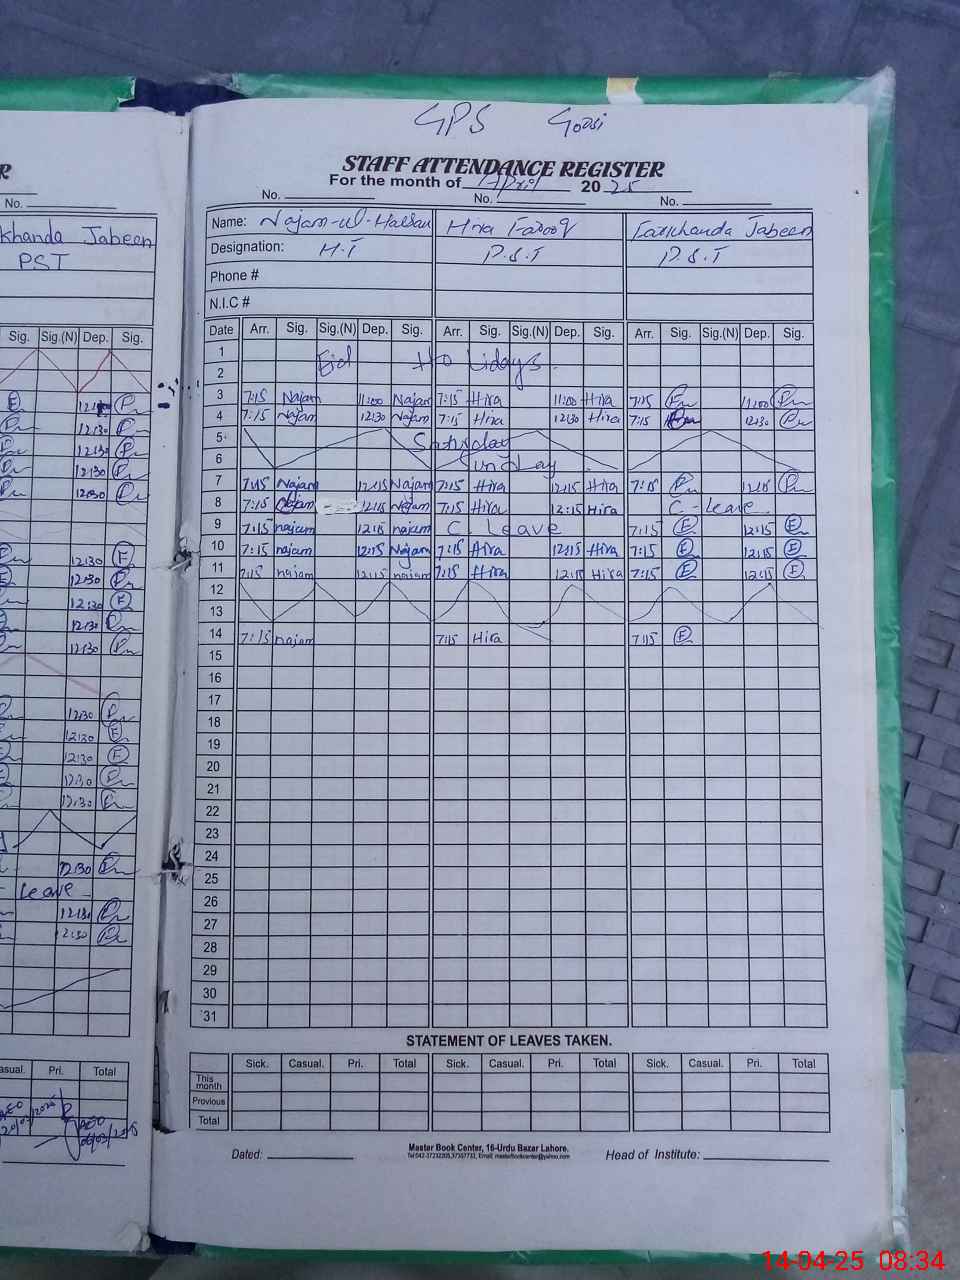 GPS Goosi
STAFF ATTENDANCE REGISTER
For the month of April 2025
No. No. No.
Name: Najam-ul-Hassan Hira Farooq Farkhanda Jabeen
Designation: H.T P.S.T P.S.T
Phone #
N.I.C #
Date Arr. Sig. Sig.(N) Dep. Sig. Arr. Sig. Sig.(N) Dep. Sig. Arr. Sig. Sig.(N) Dep. Sig.
1
Eid Holidays.
2
3 7:15 Najam 11:00 Najam 7:15 Hira 11:00 Hira 7:15 11:00
4 7:15 Najam 12:30 Najam 7:15 Hira 12:30 Hira 7:15 12:30
5 Saturday
6 Sunday
7 7:15 Najam 12:15 Najam 7:15 Hira 12:15 Hira 7:15 12:15
8 7:15 Najam 12:15 Najam 7:15 Hira 12:15 Hira C-Leave
9 7:15 najam 12:15 najam C. Leave 7:15 12:15
10 7:15 najam 12:15 Najam 7:15 Hira 12:15 Hira 7:15 12:15
11 7:15 najam 12:15 najam 7:15 Hira 12:15 Hira 7:15 12:15
12
13
14 7:15 najam 7:15 Hira 7:15
15
16
17
18
19
20
21
22
23
24
25
26
27
28
29
30
31
STATEMENT OF LEAVES TAKEN.
Sick. Casual. Pri. Total Sick. Casual. Pri. Total Sick. Casual. Pri. Total
This month
Previous
Total
Dated: Master Book Center, 16-Urdu Bazar Lahore. Head of Institute:
R
No.
khanda Jabeen
PST
Sig. Sig.(N) Dep. Sig.
12:30
12:30
12:30
12:30
12:30
12:30
12:30
12:30
12:30
12:30
12:30
12:30
12:30
12:30
12:30
Leave
12:30
12:30
asual. Pri. Total
14-04-25 08:34